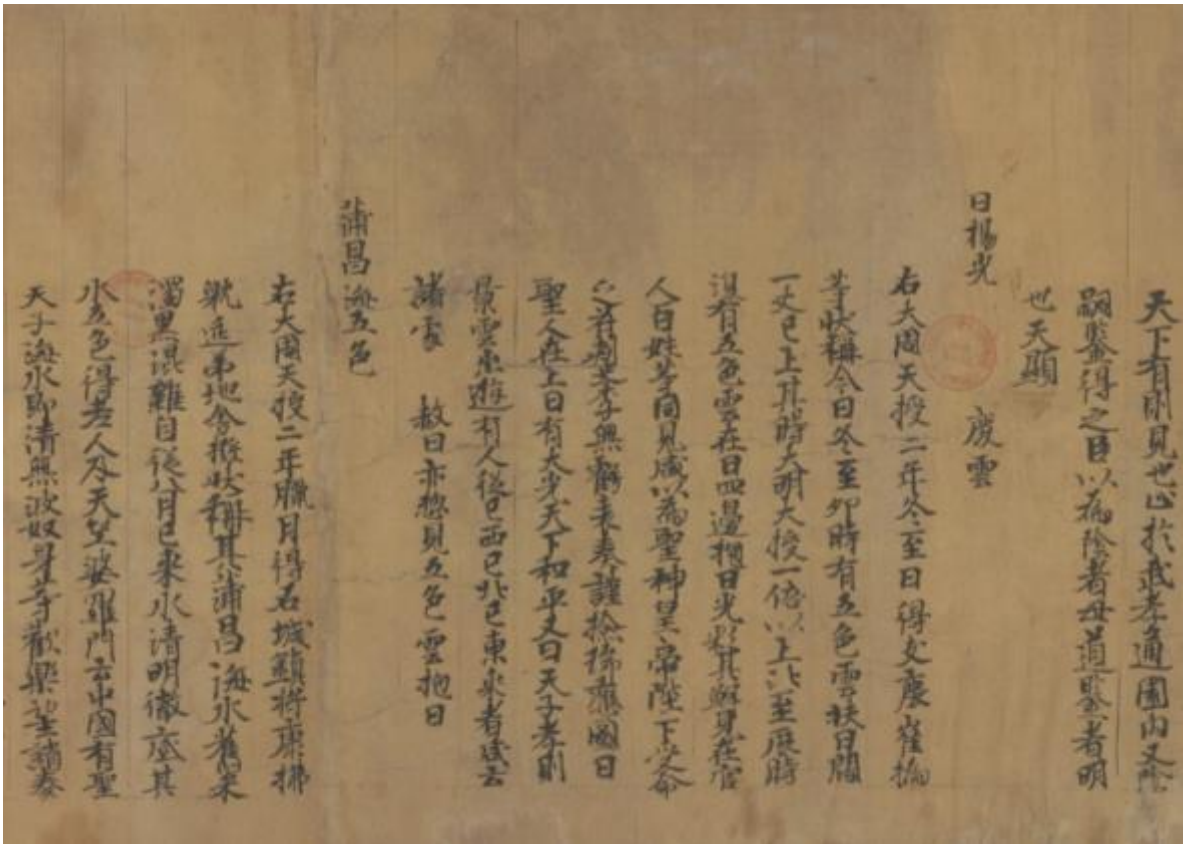 天下有則見也止於武孝通園內又陰
嗣鑒得之臣以為陰者母道鑒者明
也天顯
日揚光　慶雲
右大周天授二年冬至日得支慶崔撝
等狀稱今日冬至卯時有五色雲扶日闊
一丈已上其時大明大授一倍以上比至辰時
復有五色雲在日四邊抱日光彩甚鮮見在官
人百姓等同見咸以為聖神皇帝陛下受命
之符刺史李無虧表奏謹撿瑞應圖曰
聖人在上日有大光天下和平又曰天子孝則
景雲出遊有人從巳西巳北巳東來者咸云
諸處　赦日亦總見五色雲抱日
蒲昌海五色
右大周天授二年臘月得石城鎮將康拂
耽延弟地舍撥狀稱其蒲昌海水舊來
濁黑混雜自從八月已來水清明徹底其
水五色得老人及天竺婆羅門云中國有聖
天子海水即清無波奴身等歡樂望請奏